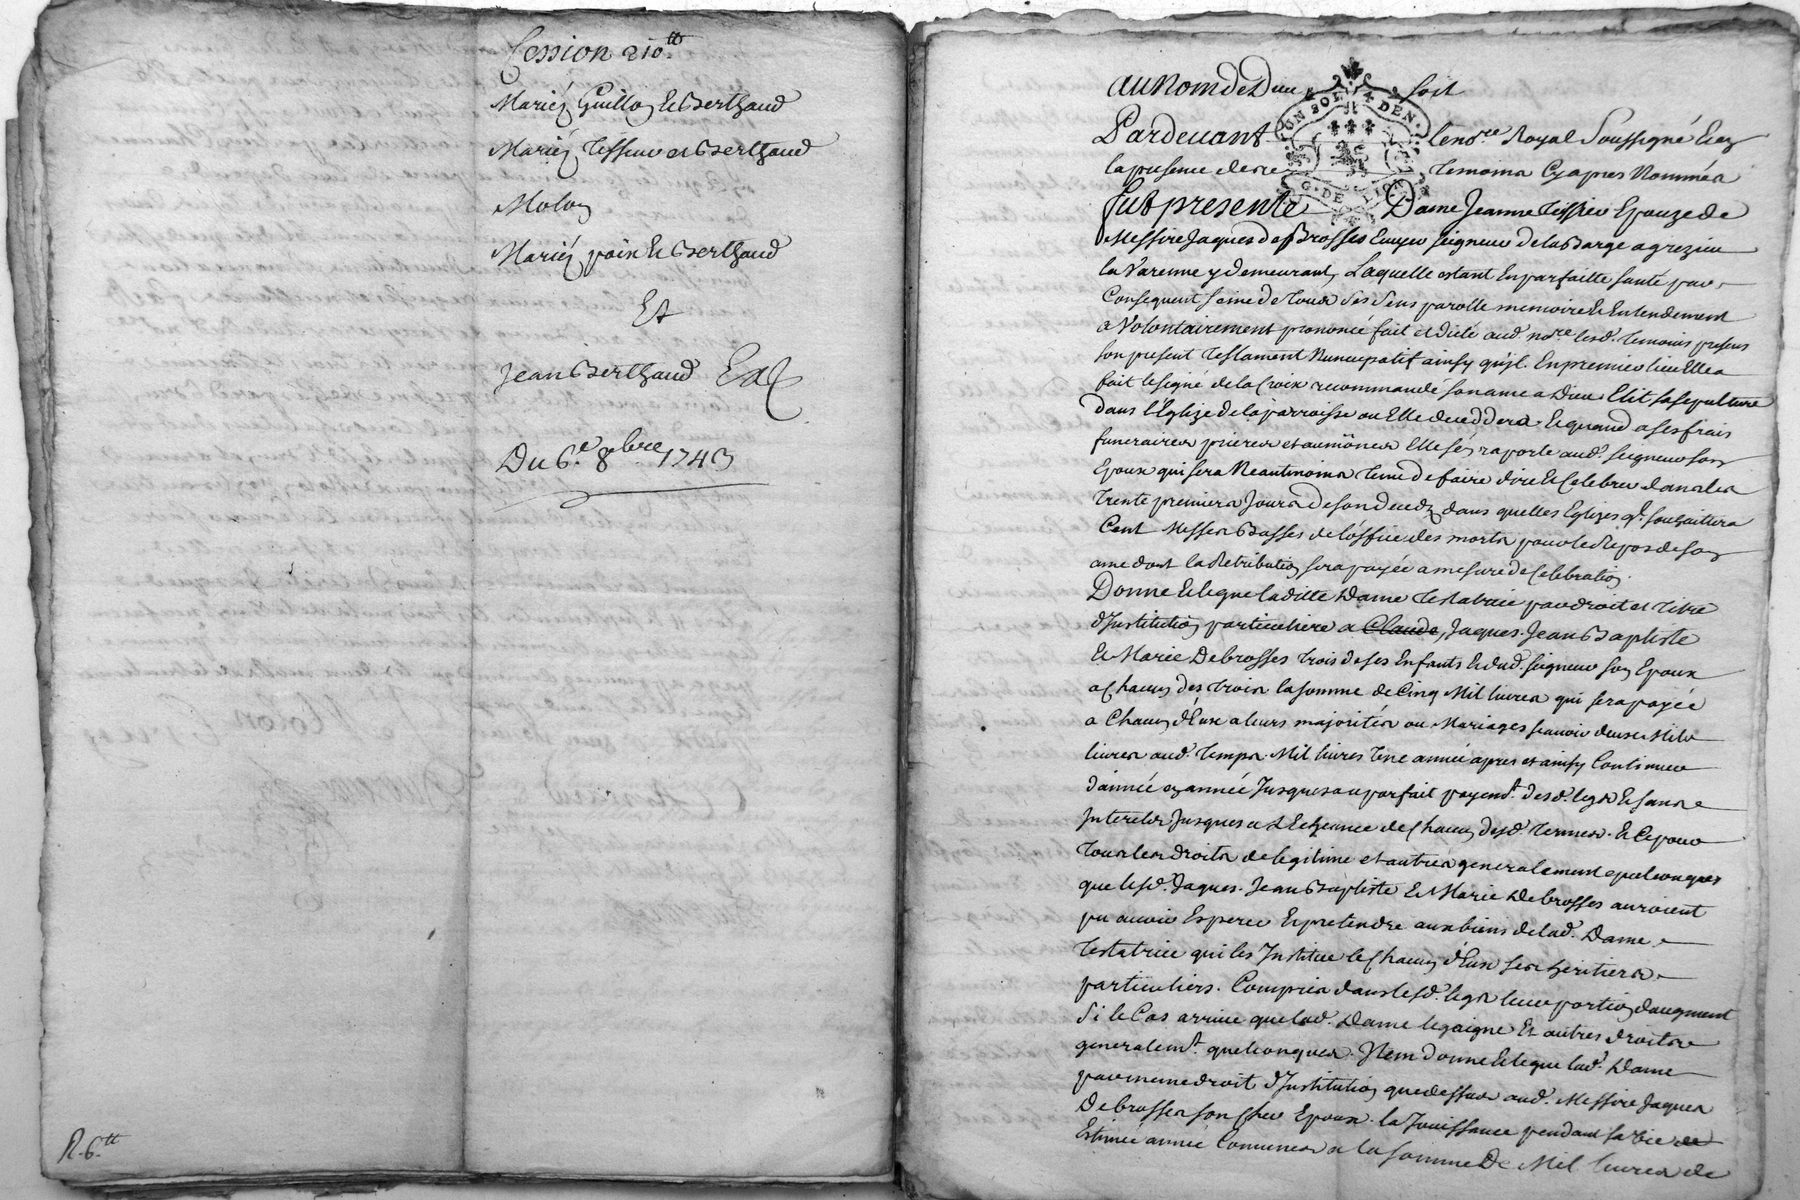 Cession 210.tt
Mariés Guillon & Berthaud
Mariés Tessieu et Berthaud
Molon
Mariés poix & Berthaud
Et
Jean Berthaud
Du 6.e 8bre 1743
R. 6.tt
au Nom de Dieu soit
UN SOL 4 DEN.
G. DE LION
Pardevant le no.re Royal soussigné & en
la presence de temoins cy apres Nommés
fut presente Dame Jeanne Tessieu Epouze de
Messire Jaques de Brosses Ecuyer seigneur de la Barge a grezieu
la Varenne y demeurant, Laquelle estant En parfaitte santé par
Consequent saine de tous ses sens parolle memoire & Entendement
a Volontairement prononcé fait et dicté aud. no.re lesd. temoins presens
son present testament Nuncupatif ainsy qu'jl. En premier lieu Elle a
fait le signe de la Croix recommandé son ame a Dieu Elit sa sepulture
dans l'Eglize de la parroisse ou Elle deceddera & quand a ses frais
funeraires prieres et aumônes Elle s'en raporte aud. seigneur son
Epoux qui sera Neantmoins tenu de faire dire & Celebrer dans les
trente premiers Jours de son decedz dans quelles Eglizes q.l souhaittera
Cent Messes Basses de l'office des morts pour le Repos de son
ame dont la Retribution sera payée a mesure de Celebration.
Donne & legue laditte Dame testatrice par droit et titre
d'Institution particuliere a Claude, Jaques. Jean Baptiste
& Marie Debrosses trois de ses Enfants & dud. seigneur son Epoux
a Chacun des trois la somme de Cinq Mil livres qui sera payée
a Chacun d'Eux a leurs majorités ou Mariages scauoir deux Mil
livres aud. temps. Mil livres une année apres et ainsy Continuer
d'année en année Jusques au parfait payem.t desd. legs & sans
Interets Jusques a L'Echeance de Chacun desd. termes. & Ce pour
tous les droits de legitime et autres generalement quelconques
que lesd. Jaques. Jean Baptiste & Marie Debrosses auroient
pu auoir Esperer & pretendre aux biens de lad. Dame
testatrice qui les Institue & Chacun d'Eux ses heritiers
particuliers. Compris dans lesd. legs leur portion d'augment
si le Cas arrive que lad. Dame le gaigne Et autres droits
generalem.t quelconques. Jtem donne & legue lad. Dame
par meme droit d'Institution que dessus aud. Messire Jaques
Debrosses son cher Epoux. la Jouissance pendant sa vie de
Estimée année Comunes a la somme De Mil livres de